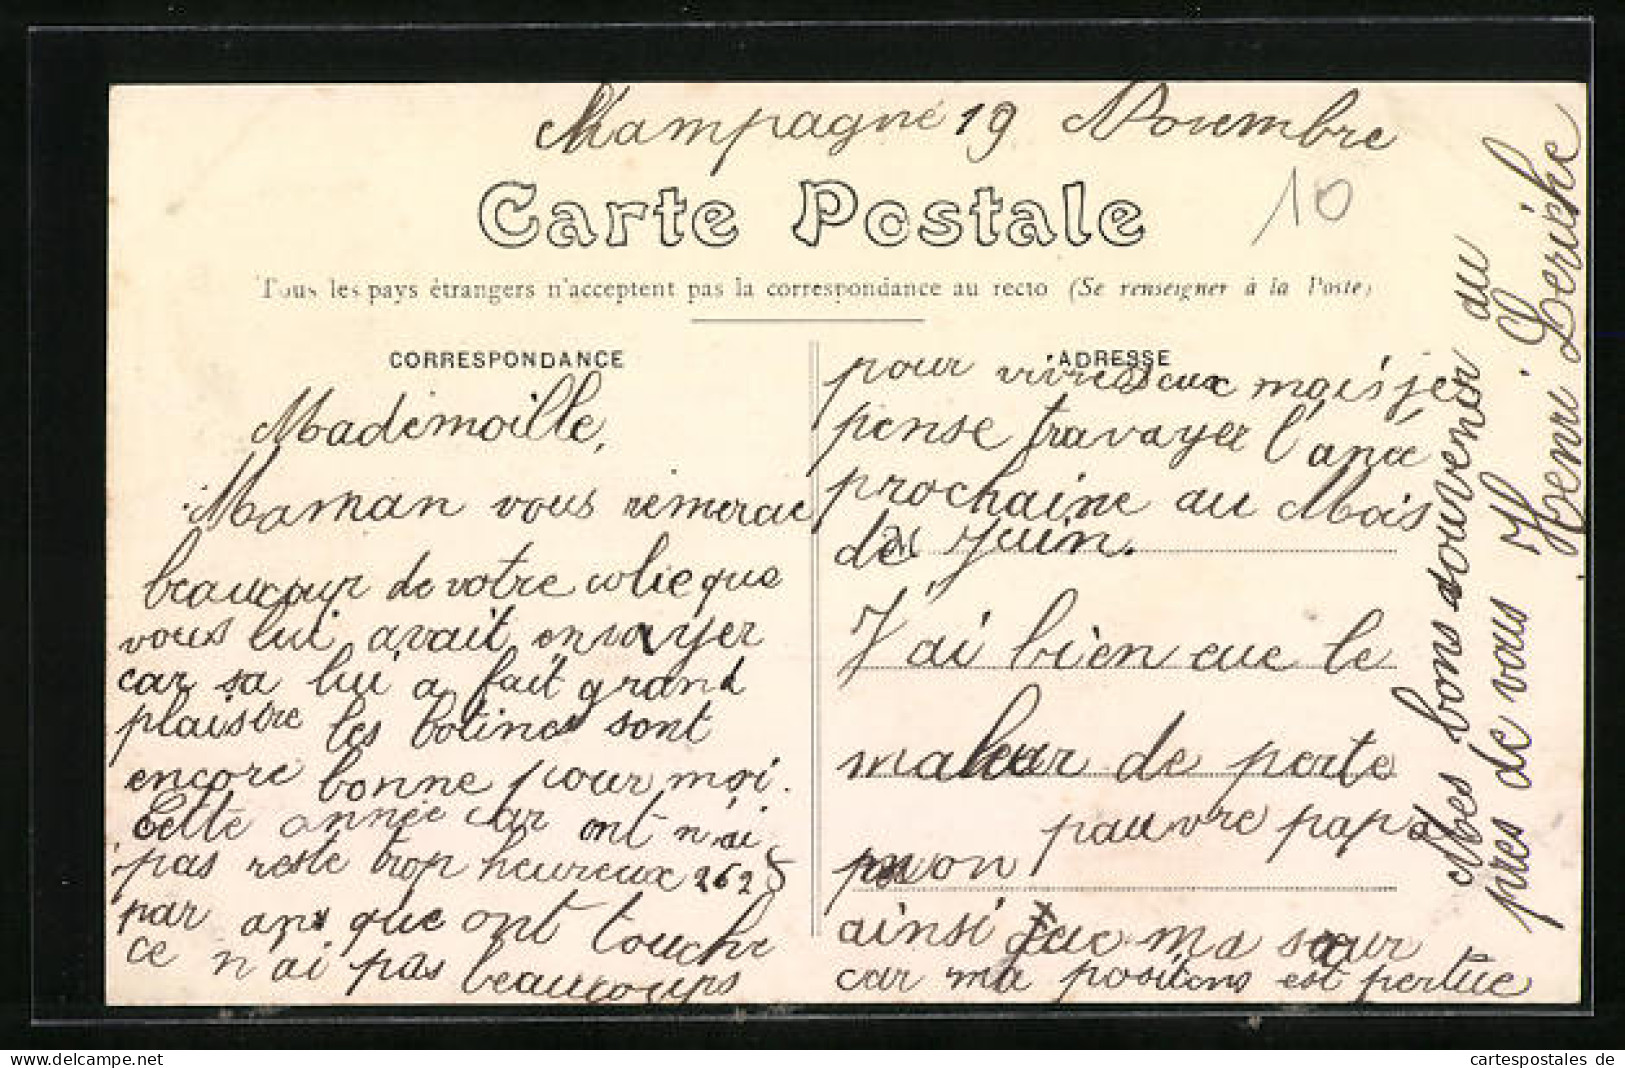 Champagné 19 Novembre
10
Carte Postale
Tous les pays étrangers n'acceptent pas la correspondance au recto (Se renseigner à la Poste)
CORRESPONDANCE
Mademoille,
Maman vous remercie
beaucoup de votre colie que
vous lui avait envoyer
car sa lui a fait grand
plaisire les botines sont
encore bonne pour moi.
Cette année car ont n'ai
pas reste trop heureux 262 5
par ans que ont touche
ce n'ai pas beaucoups
ADRESSE
pour vivre deux mois je
pense travayer l'anée
prochaine au Mois
de Juin.
J'ai bien eue le
maleur de perte
mon pauvre papa
ainsi que ma sœur
car ma positions est pertue
Mes bons souvenir du
pres de vous
Henri Leriche
cartespostales de